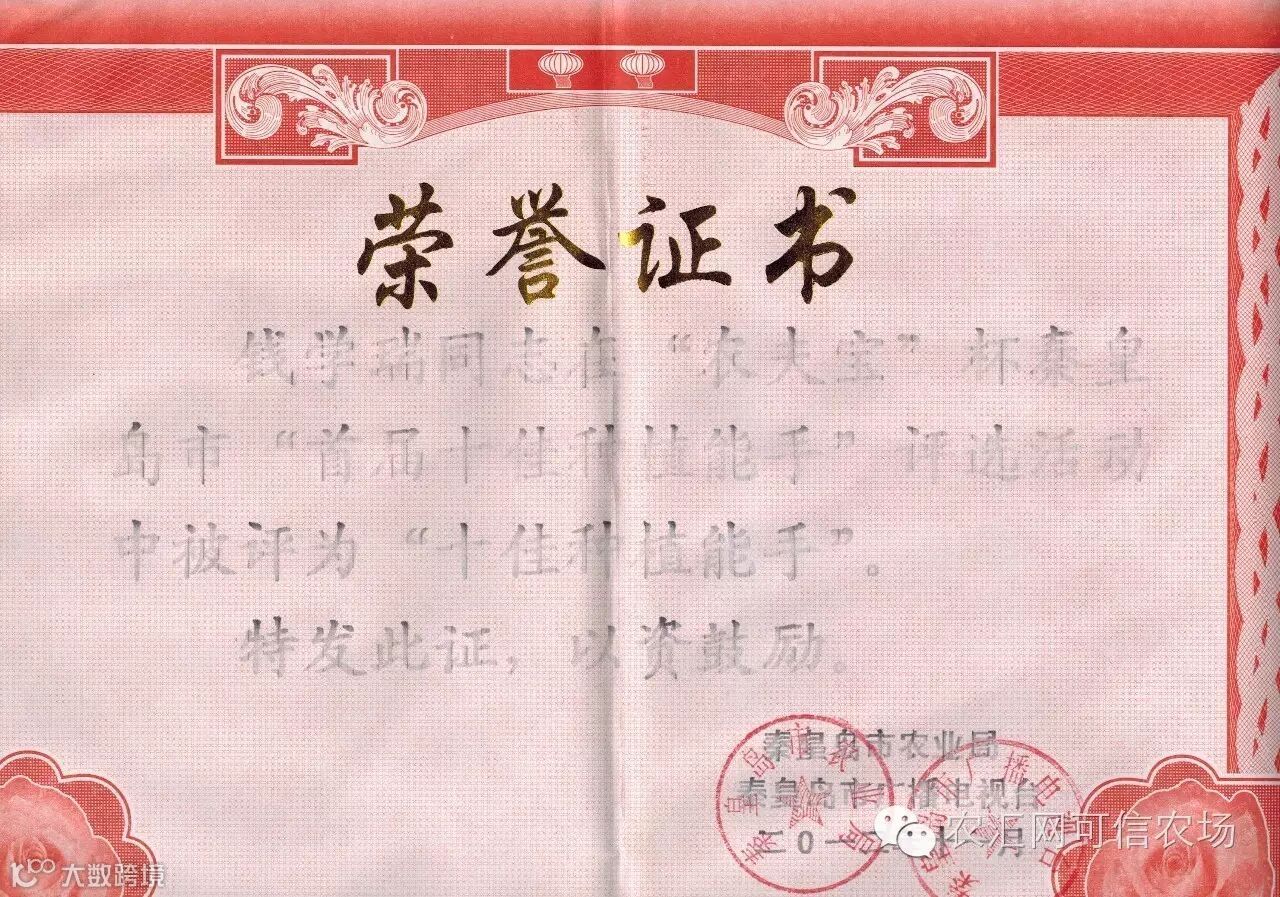 荣誉证书
钱学瑞同志在“农夫宝”杯秦皇
岛市“首届十佳种植能手”评选活动
中被评为“十佳种植能手”。
特发此证，以资鼓励。
秦皇岛市农业局
秦皇岛市广播电视台
二〇一
月
农汇网可信农场
大数跨境